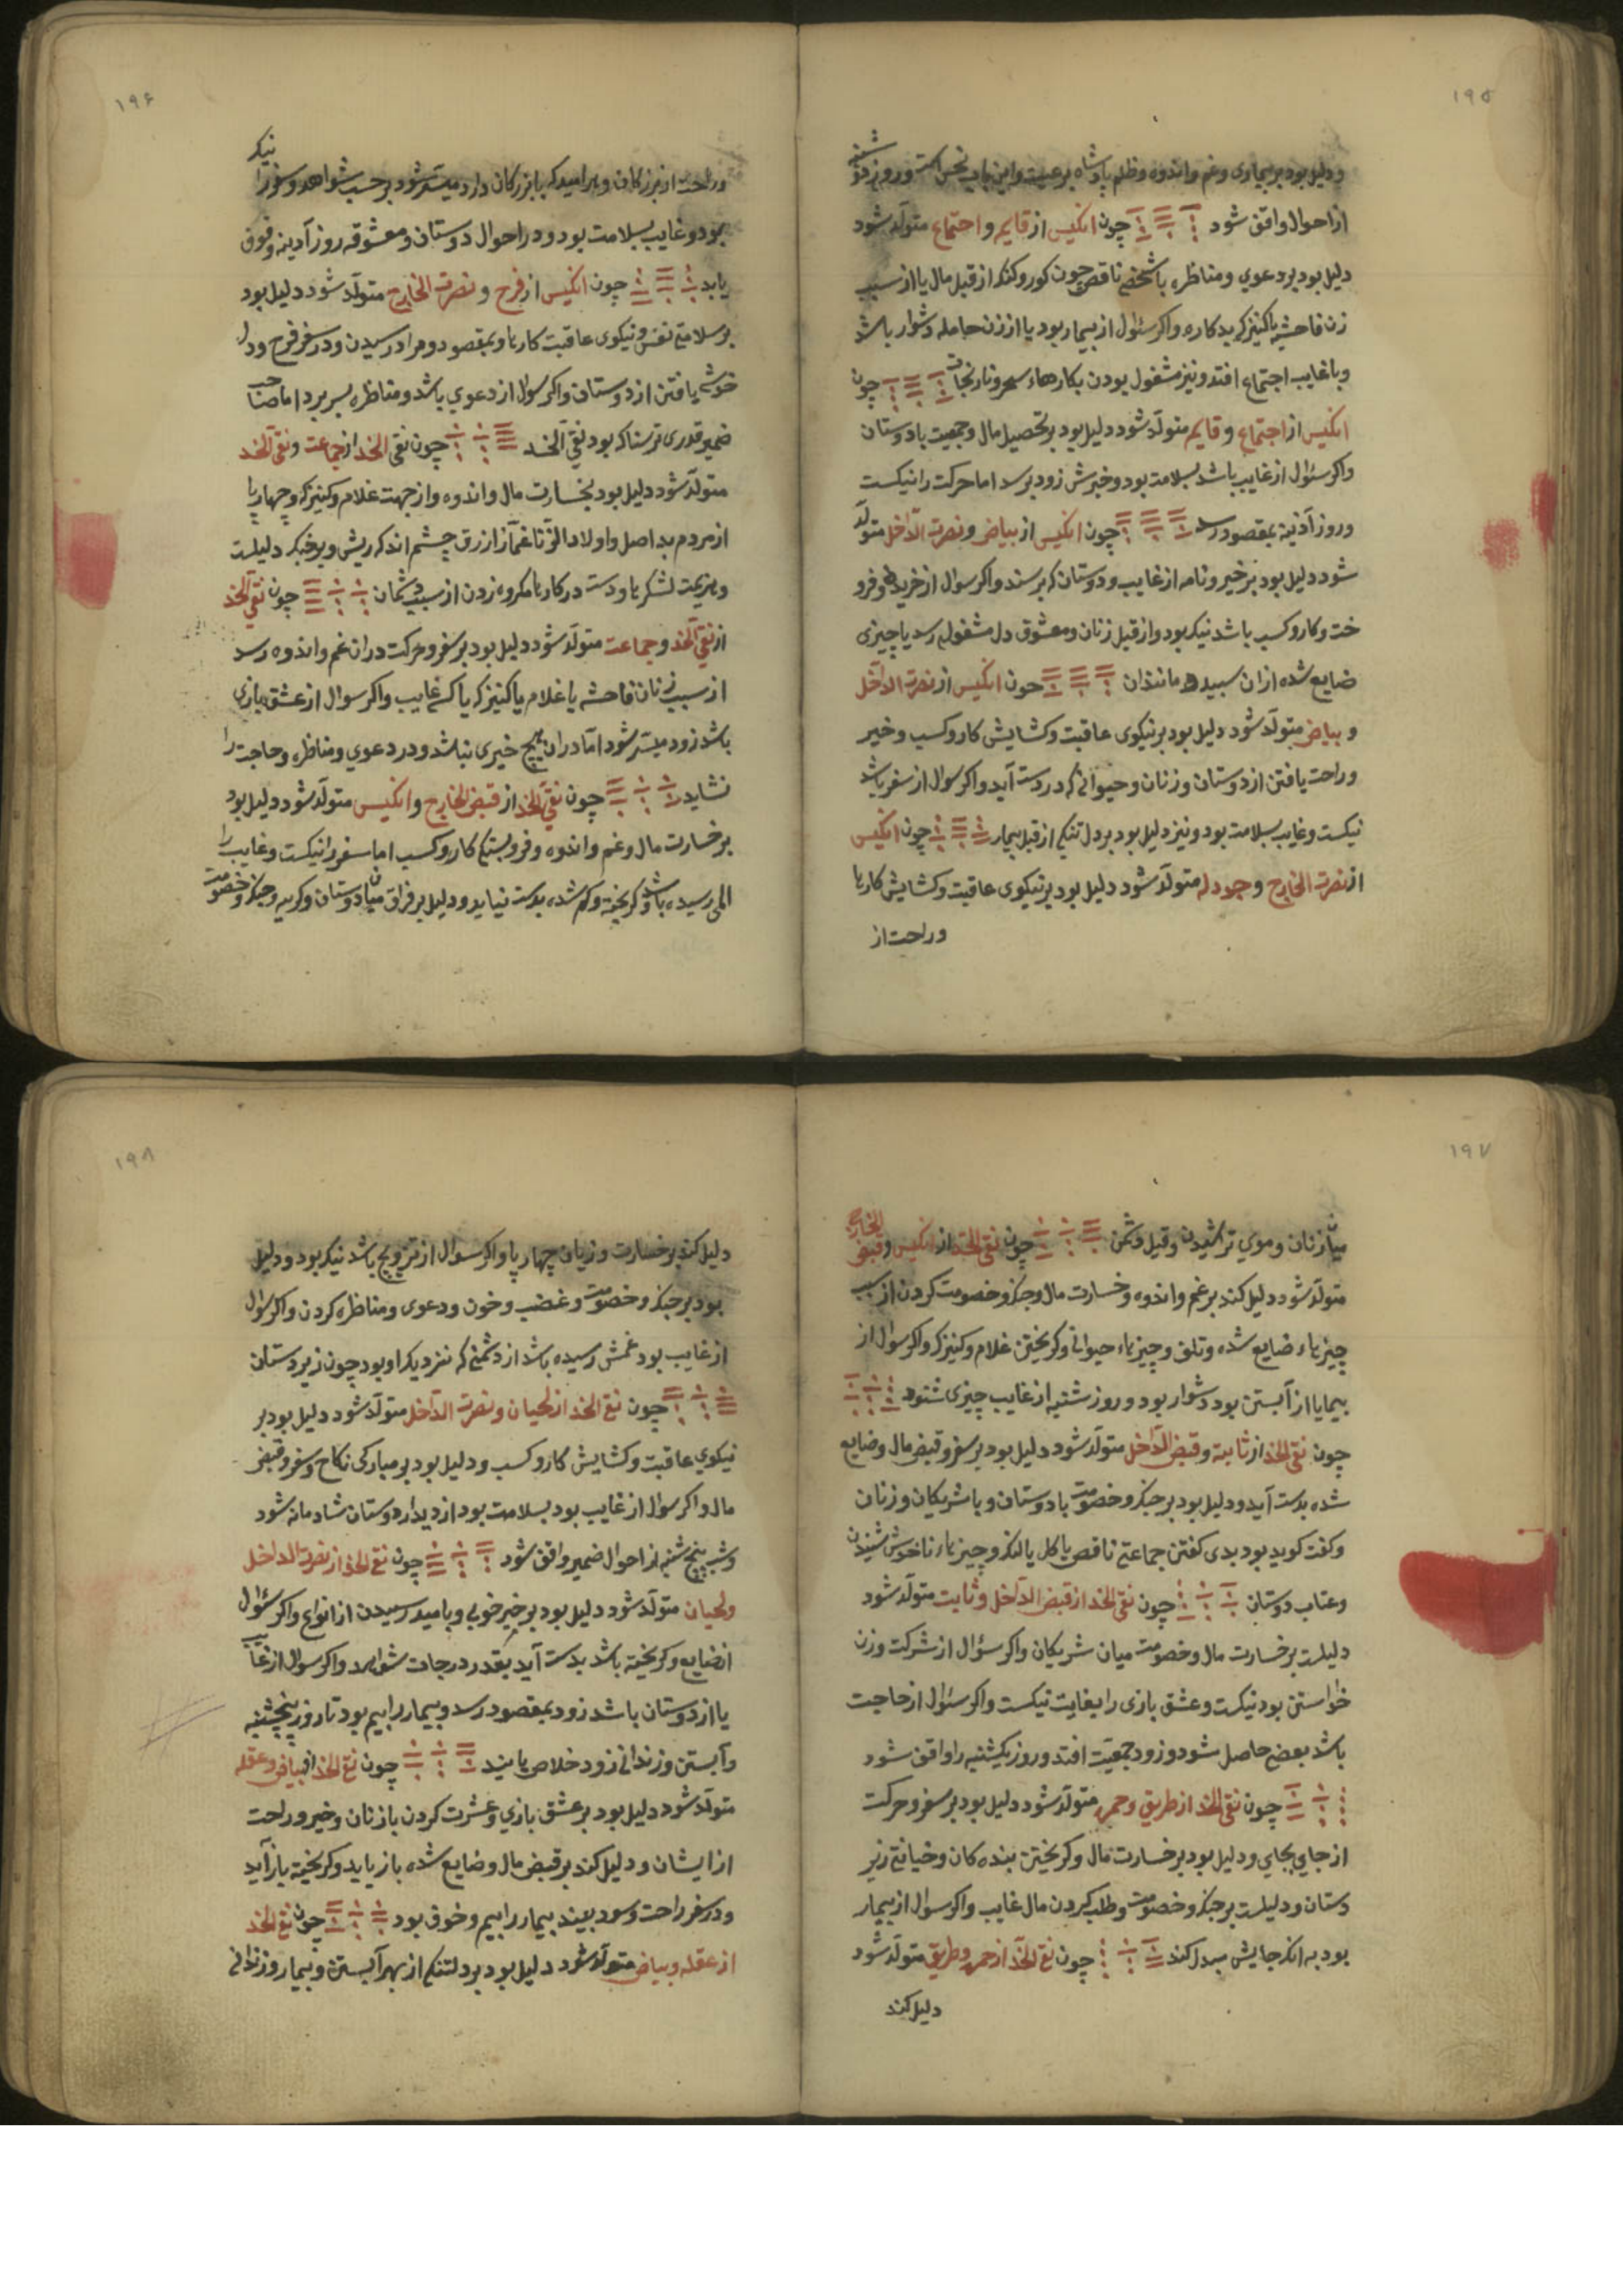 ۱۹۵
ودلیل بود بر بیماری وغم واندوه وظلم پادشاه بر رعیت واین باب نحس است وروز شنبه
از احوال واقف شود چون انکیس از قایم و اجتماع متولّد شود
دلیل بود بر دعوی ومناظره باشخصی ناقص چون کور وکنک از قبل مال یا از سبب
زن فاحشه یا کنیزک بدکاره واکر سئوال از بیمار بود یا از زن حامله دشوار باشد
وبا غایب اجتماع افتد ونیز مشغول بودن بکارهاء سحر ونارنجات چون
انکیس از اجتماع و قایم متولّد شود دلیل بود بر تحصیل مال وجمعیت با دوستان
واکر سئوال از غایب باشد بسلامت بود وخبرش زود برسد اما حرکت را نیکست
وروز آذینه بمقصود رسد چون انکیس از بیاض و نصرت الدّاخل متولّد
شود دلیل بود بر خیر ونامه از غایب ودوستان که برسند واکر سوال از خرید وفرو
خت وکار وکسب باشد نیک بود واز قبل زنان ومعشوق دل مشغولم رسد یا چیزی
ضایع شده ازان سپید وماننذان چون انکیس از نصرت الداخل
و بیاض متولّد شود دلیل بود بر نیکوی عاقبت وکشایش کار وکسب وخیر
وراحت یافتن از دوستان وزنان وحیوانی که در دست آید واکر سوال از سفر باشد
نیکست وغایب بسلامت بود ونیز دلیل بود بر دل تنکی از قبل بیمار چون انکیس
از نصرت الخارج و جودله متولّد شود دلیل بود بر نیکوی عاقبت وکشایش کارها
وراحت از
۱۹۶
وراحت از بزرکان وهر امید که با بزرکان دارد میسّر شود بر حسب شواهد وسفر را نیک
بود وغایب بسلامت بود ودر احوال دوستان ومعشوقه روز آدینه وقوف
یابد چون انکیس از فرح و نصرت الخارج متولّد شود دلیل بود
بر سلامتی نفس ونیکوی عاقبت کارها وبمقصود ومراد رسیدن ودر سفر فرح ودل
خوشی یافتن از دوستان واکر سوال از دعوی باشد ومناظره بسر برد اما صاحب
ضمیر قدری ترسناک بود نقی الخد چون نقی الخد از جماعت و نقی الخد
متولّد شود دلیل بود بخسارت مال واندوه واز جهت غلام وکنیزک وچهارپا
از مردم بد اصل واولاد الزّنا غمّاز ازرق چشم اندک ریش وبوخبک دلیلست
وهزیمت لشکرها ودست در کارها مکروه زدن از سبب دشمنان چون نقی الخد
از نقی الخد و جماعت متولّد شود دلیل بود بر سفر وحرکت دران غم واندوه رسد
از سبب زنان فاحشه یا غلام یا کنیزک یا کسی غایب واکر سوال از عشق بازی
باشد زود میسّر شود امّا دران هیچ خیری نباشد ودر دعوی ومناظره وحاجت را
نشاید چون نقی الخد از قبض الخارج و انکیس متولّد شود دلیل بود
بر خسارت مال وغم واندوه وفروبستکی کار وکسب اما سفر را نیکست وغایب را
المی رسیده باشد وکریخته وکم شده بدست نیاید ودلیل بر فراق میان دوستان وکریه وجنک وخصومت
۱۹۷
میان زنان وموی تراشیدن وقیل چون نقی الخد از انکیس و قبض الخارج
متولّد شود دلیل کند بر غم واندوه وخسارت مال وجنک وخصومت کردن از سبب
چیزهاء ضایع شده وتلف وچیزهاء حیوانی وکریختن غلام وکنیزک واکر سوال از
بیمار یا از آبستن بود دشوار بود وروز شنبه از غایب چیزی شنود
چون نقی الخد از ثابته و قبض الدّاخل متولّد شود دلیل بود بر سفر وقبض مال وضایع
شده بدست آید ودلیل بود بر جنک وخصومت با دوستان وبا شریکان وزنان
وکفت کوید بود بدی کفتن جماعتی ناقص یا کل یا لنک وچیزهاء ناخوش شنیدن
وعتاب دوستان چون نقی الخد از قبض الدّاخل و ثابت متولّد شود
دلیلست بر خسارت مال وخصومت میان شریکان واکر سؤال از شرکت وزن
خواستن بود نیکست وعشق بازی را بغایت نیکست واکر سئوال از حاجت
باشد بعضی حاصل شود وزود جمعیّت افتد وروز یکشنبه را واقف شود
چون نقی الخد از طریق و حمره متولّد شود دلیل بود بر سفر وحرکت
از جای بجای ودلیل بود بر خسارت مال وکریختن بنده کان وخیانتی زیر
دستان ودلیلست بر جنک وخصومت وطلب کردن مال غایب واکر سوال از بیمار
بود به انکه جایش مبدل کند چون نقی الخد از حمره و طریق متولّد شود
دلیل کند
۱۹۸
دلیل کند بر خسارت وزیان چهارپا واکر سوال از تزویج باشد نیک بود ودلیل
بود بر جنک وخصومت وغضب وخون ودعوی ومناظره کردن واکر سوال
از غایب بود غمش رسیده باشد از دشمنی که نزدیک او بود چون زیردستان
چون نقی الخد از لحیان و نصرت الدّاخل متولّد شود دلیل بود بر
نیکوی عاقبت وکشایش کار وکسب ودلیل بود بر مبارکی نکاح وسفر وقبض
مال واکر سوال از غایب بود بسلامت بود از دیدار دوستان شادمانه شود
وشب پنج شنبه از احوال ضمیر واقف شود چون نقی الخد از نصرت الداخل
ولحیان متولّد شود دلیل بود بر خیر خوبی وبامید رسیدن از انواع واکر سئوال
از ضایع وکریخته باشد بدست آید بقدر درجات شواهد واکر سوال از غایب
یا از دوستان باشد زود بمقصود رسد وبیمار را بیم بود تا روز پنجشنبه
وآبستن وزندانی زود خلاص یابند چون نقی الخد از بیاض وعقله
متولّد شود دلیل بود بر عشق بازی وعشرت کردن با زنان وخیر وراحت
از ایشان ودلیل کند بر قبض مال وضایع شده باز یابد وکریخته باز آید
ودر سفر راحت وسود ببیند بیمار را بیم وخوف بود چون نقی الخد
از عقله وبیاض متولّد شود دلیل بود بر دلتنکی از بهر آبستن وبیمار وزندانی